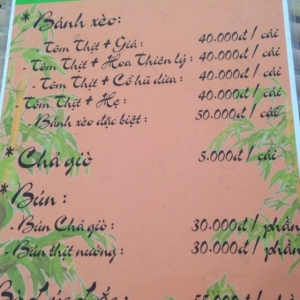 * Bánh xèo:
- Tôm Thịt + Giá: 40.000đ / cái
- Tôm Thịt + Hoa Thiên lý: 40.000đ / cái
- Tôm Thịt + Cổ hũ dừa: 40.000đ / cái
- Tôm Thịt + Hẹ: 40.000đ / cái
- Bánh xèo đặc biệt: 50.000đ / cái
* Chả giò 5.000đ / cái
* Bún:
- Bún Chả giò: 30.000đ / phần
- Bún thịt nướng: 30.000đ / phần